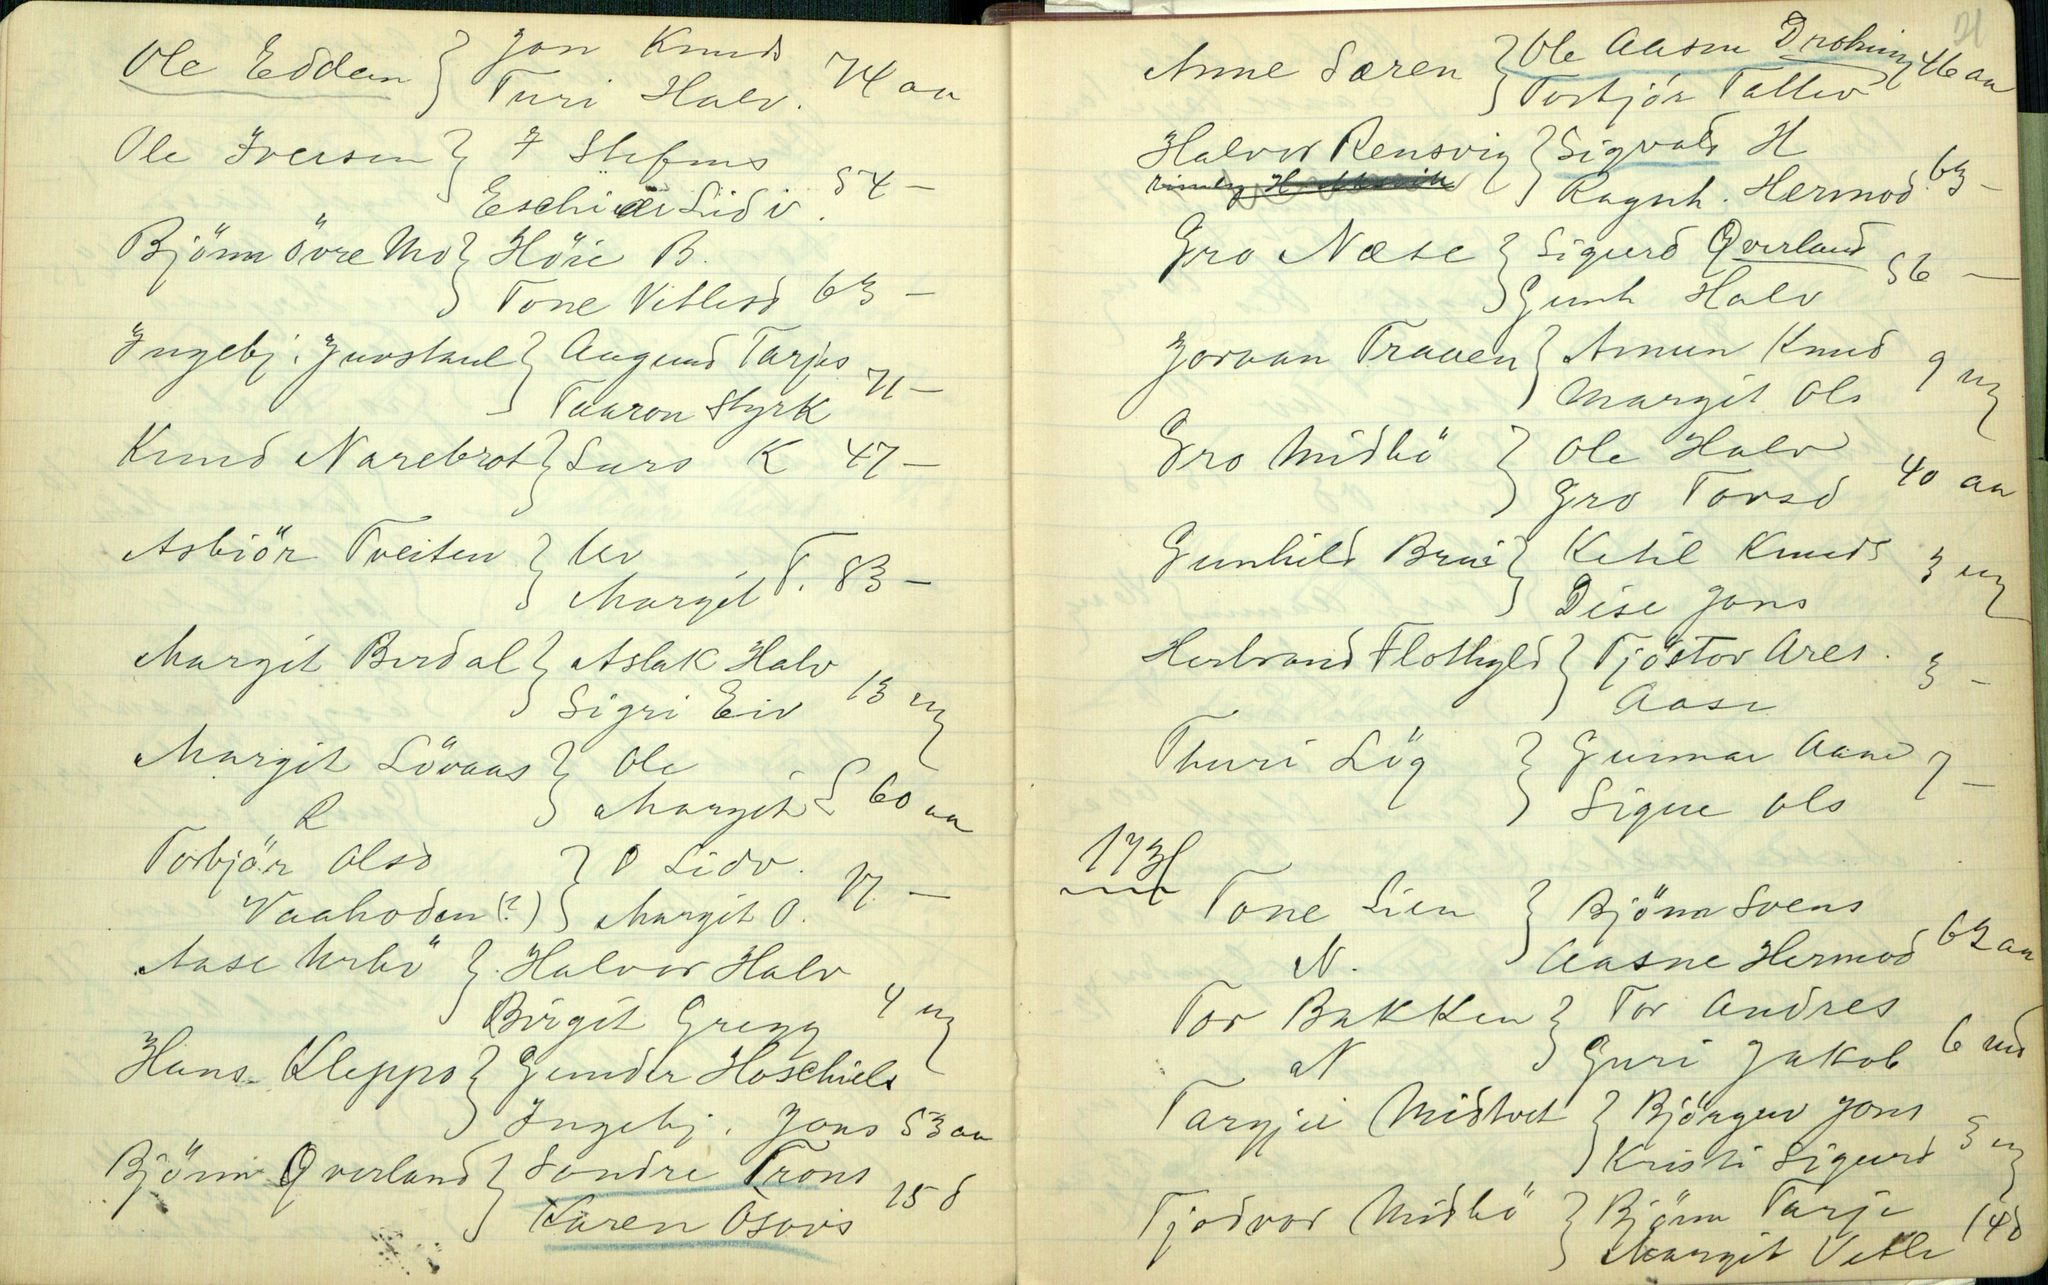 Ole Edden } Jon Knuds
Turi Halv. 74 aa
Ole Iversen } I Stefens
Lidv. 54 —
Björn övre Mo } Höie B.
Tone Vetlesd 63 —
Ingebj. Juvstaul } Augund Tarjes
Taaron Styrk 71 —
Knud Narebrot } Lars K 47 —
Asbiör Tveiten } Uv
Margit T. 83 —
Margit Berdal } Aslak Halv
Sigri Eiv 13 ug
Margit Lövaas } Ole
R Margit L 60 aa
Torbjör Olsd } O Lidv.
Vaahoden (?) Margit O. 17 —
Aase Mrbö } Halvor Halv
Birgit Gregg 4 ug
Hans Kleppo } Gunder Hoschiels
Ingebj. Jons 53 aa
Björn Qverland } Sondre Trons
Karen Osovs 15 d
21
Anne Søren } Ole Aasm
Torbjör Tallev 46 aa
Halvor Rensvig } Sigvald H
Ragnh. Hermod 63 —
Gro Næse } Sigurd Qverland
Gunh Halv 56 —
Joraan Traaen } Amun Knud
Margit Ols 9 ug
Gro Midbö } Ole Halv
Gro Torsd 40 aa
Gunhild Brui } Ketil Knuds
Dise Jons 3 ug
Herbrand Flothyld } Tjöstov Ares.
Aase 3 —
Thuri Lög } Gunnar Aani
Signe Ols 7 —
1731
Tone Lien } Björn Svens
N. Aasne Hermod 62 aa
Tor Bakken } Tor Andres
N Guri Jakob 6 md
Targjei Midtvet } Björguv Jons
Kristi Sigurd 3 ug
Tjodvor Midbö } Björn Tarje
Margit Vetle 14 d